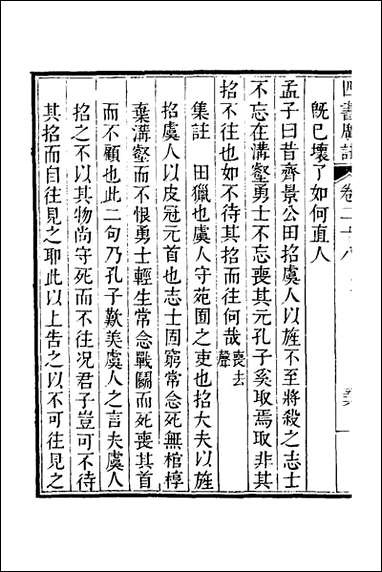 四書
卷二十八
既已壞了如何直人
孟子曰昔齊景公田招虞人以旌不至將殺之志士
不忘在溝壑勇士不忘喪其元孔子奚取焉取非其
招不往也如不待其招而往何哉喪去聲
集註　田獵也虞人守苑囿之吏也招大夫以旌
招虞人以皮冠元首也志士固窮常念死無棺椁
棄溝壑而不恨勇士輕生常念戰鬬而死喪其首
而不顧也此二句乃孔子歎美虞人之言夫虞人
招之不以其物尚守死而不往况君子豈可不待
其招而自往見之耶此以上告之以不可往見之